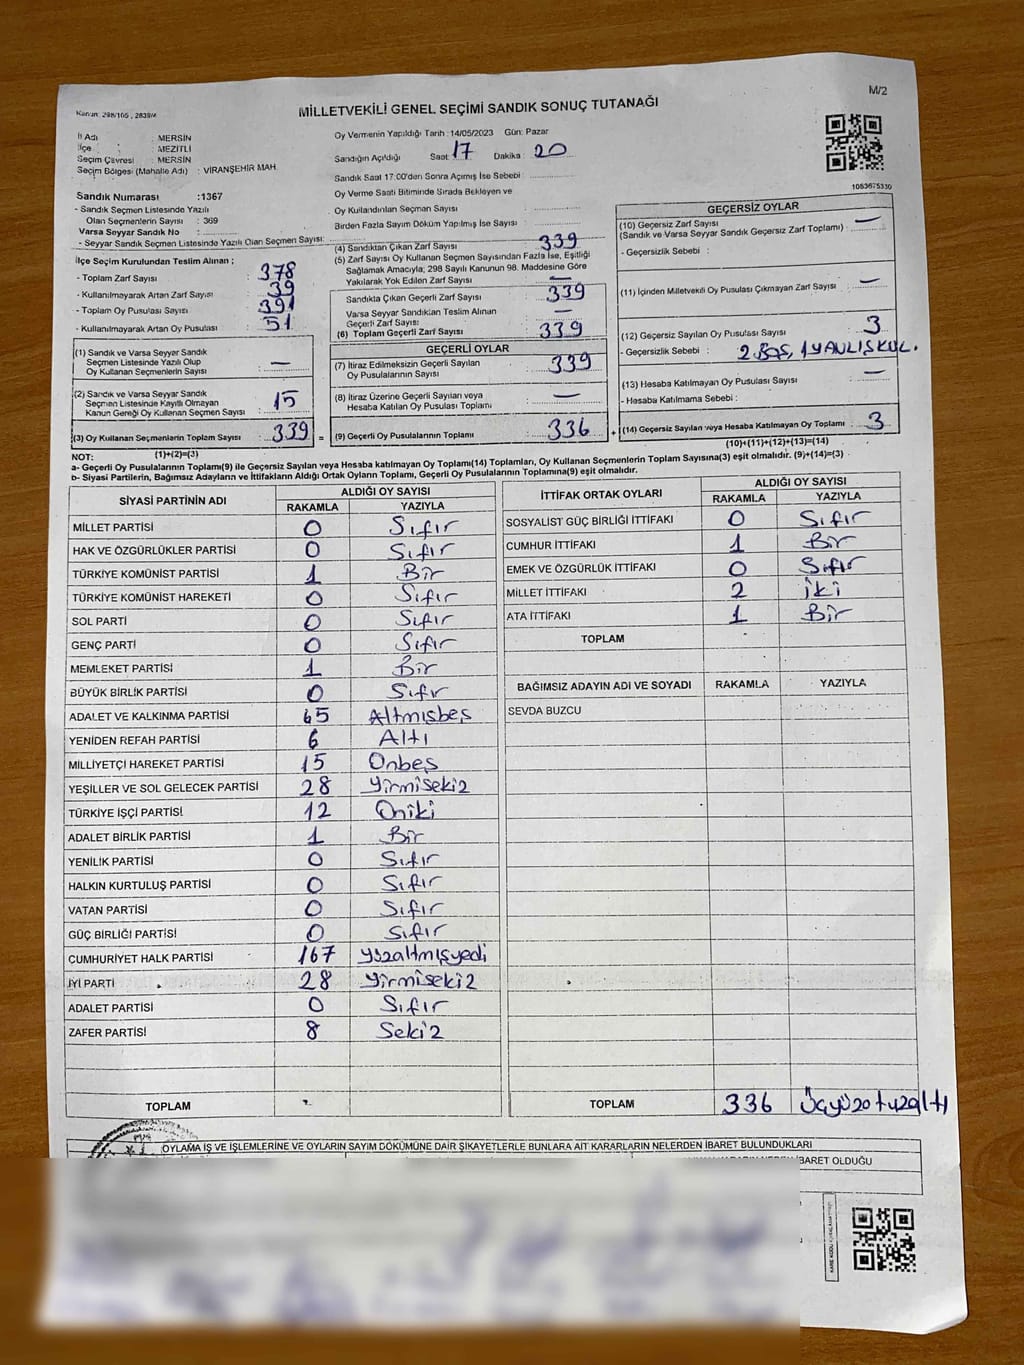 M/2
Kanun: 298/105 , 2839/4
MİLLETVEKİLİ GENEL SEÇİMİ SANDIK SONUÇ TUTANAĞI
İl Adı : MERSİN
İlçe : MEZİTLİ
Seçim Çevresi : MERSİN
Seçim Bölgesi (Mahalle Adı) : VİRANŞEHİR MAH.
Sandık Numarası :1367
- Sandık Seçmen Listesinde Yazılı
Olan Seçmenlerin Sayısı : 369
Varsa Seyyar Sandık No :
- Seyyar Sandık Seçmen Listesinde Yazılı Olan Seçmen Sayısı:
İlçe Seçim Kurulundan Teslim Alınan ;
- Toplam Zarf Sayısı : 378
- Kullanılmayarak Artan Zarf Sayısı : 39
- Toplam Oy Pusulası : 391
- Kullanılmayarak Artan Oy Pusulası : 51
(1) Sandık ve Varsa Seyyar Sandık
Seçmen Listesinde Yazılı Olup
Oy Kullanan Seçmenlerin Sayısı : —
(2) Sandık ve Varsa Seyyar Sandık
Seçmen Listesinde Kayıtlı Olmayan
Kanun Gereği Oy Kullanan Seçmen Sayısı : 15
(3) Oy Kullanan Seçmenlerin Toplam Sayısı : 339 =
(1)+(2)=(3)
Oy Vermenin Yapıldığı Tarih :14/05/2023 Gün: Pazar
Sandığın Açıldığı Saat: 17 Dakika : 20
Sandık Saat 17:00'den Sonra Açılmış İse Sebebi :
Oy Verme Saati Bitiminde Sırada Bekleyen ve
Oy Kullandırılan Seçmen Sayısı :
Birden Fazla Sayım Döküm Yapılmış İse Sayısı :
(4) Sandıktan Çıkan Zarf Sayısı : 339
(5) Zarf Sayısı Oy Kullanan Seçmen Sayısından Fazla İse, Eşitliği
Sağlamak Amacıyla; 298 Sayılı Kanunun 98. Maddesine Göre
Yakılarak Yok Edilen Zarf Sayısı : —
Sandıkta Çıkan Geçerli Zarf Sayısı : 339
Varsa Seyyar Sandıktan Teslim Alınan
Geçerli Zarf Sayısı : —
(6) Toplam Geçerli Zarf Sayısı : 339
GEÇERLİ OYLAR
(7) İtiraz Edilmeksizin Geçerli Sayılan
Oy Pusulalarının Sayısı : 339
(8) İtiraz Üzerine Geçerli Sayılan veya
Hesaba Katılan Oy Pusulası Toplamı : —
(9) Geçerli Oy Pusulalarının Toplamı : 336 +
1053675330
GEÇERSİZ OYLAR
(10) Geçersiz Zarf Sayısı : —
(Sandık ve Varsa Seyyar Sandık Geçersiz Zarf Toplamı)
- Geçersizlik Sebebi :
(11) İçinden Milletvekili Oy Pusulası Çıkmayan Zarf Sayısı : —
(12) Geçersiz Sayılan Oy Pusulası Sayısı : 3
- Geçersizlik Sebebi : 2 BOŞ, 1 YANLIŞ KUL.
(13) Hesaba Katılmayan Oy Pusulası Sayısı : —
- Hesaba Katılmama Sebebi :
(14) Geçersiz Sayılan veya Hesaba Katılmayan Oy Toplamı : 3
(10)+(11)+(12)+(13)=(14)
NOT:
a- Geçerli Oy Pusulalarının Toplamı(9) ile Geçersiz Sayılan veya Hesaba katılmayan Oy Toplamı(14) Toplamları, Oy Kullanan Seçmenlerin Toplam Sayısına(3) eşit olmalıdır. (9)+(14)=(3)
b- Siyasi Partilerin, Bağımsız Adayların ve İttifakların Aldığı Ortak Oyların Toplamı, Geçerli Oy Pusulalarının Toplamına(9) eşit olmalıdır.
SİYASİ PARTİNİN ADI ALDIĞI OY SAYISI
RAKAMLA YAZIYLA
MİLLET PARTİSİ 0 Sıfır
HAK VE ÖZGÜRLÜKLER PARTİSİ 0 Sıfır
TÜRKİYE KOMÜNİST PARTİSİ 1 Bir
TÜRKİYE KOMÜNİST HAREKETİ 0 Sıfır
SOL PARTİ 0 Sıfır
GENÇ PARTİ 0 Sıfır
MEMLEKET PARTİSİ 1 Bir
BÜYÜK BİRLİK PARTİSİ 0 Sıfır
ADALET VE KALKINMA PARTİSİ 65 Altmışbeş
YENİDEN REFAH PARTİSİ 6 Altı
MİLLİYETÇİ HAREKET PARTİSİ 15 Onbeş
YEŞİLLER VE SOL GELECEK PARTİSİ 28 Yirmisekiz
TÜRKİYE İŞÇİ PARTİSİ 12 Oniki
ADALET BİRLİK PARTİSİ 1 Bir
YENİLİK PARTİSİ 0 Sıfır
HALKIN KURTULUŞ PARTİSİ 0 Sıfır
VATAN PARTİSİ 0 Sıfır
GÜÇ BİRLİĞİ PARTİSİ 0 Sıfır
CUMHURİYET HALK PARTİSİ 167 Yüzaltmışyedi
İYİ PARTİ 28 Yirmisekiz
ADALET PARTİSİ 0 Sıfır
ZAFER PARTİSİ 8 Sekiz
TOPLAM
İTTİFAK ORTAK OYLARI ALDIĞI OY SAYISI
RAKAMLA YAZIYLA
SOSYALİST GÜÇ BİRLİĞİ İTTİFAKI 0 Sıfır
CUMHUR İTTİFAKI 1 Bir
EMEK VE ÖZGÜRLÜK İTTİFAKI 0 Sıfır
MİLLET İTTİFAKI 2 İki
ATA İTTİFAKI 1 Bir
TOPLAM
BAĞIMSIZ ADAYIN ADI VE SOYADI RAKAMLA YAZIYLA
SEVDA BUZCU
TOPLAM 336 Üçyüzotuzaltı
OYLAMA İŞ VE İŞLEMLERİNE VE OYLARIN SAYIM DÖKÜMÜNE DAİR ŞİKAYETLERLE BUNLARA AİT KARARLARIN NELERDEN İBARET BULUNDUKLARI
İBARET OLDUĞU